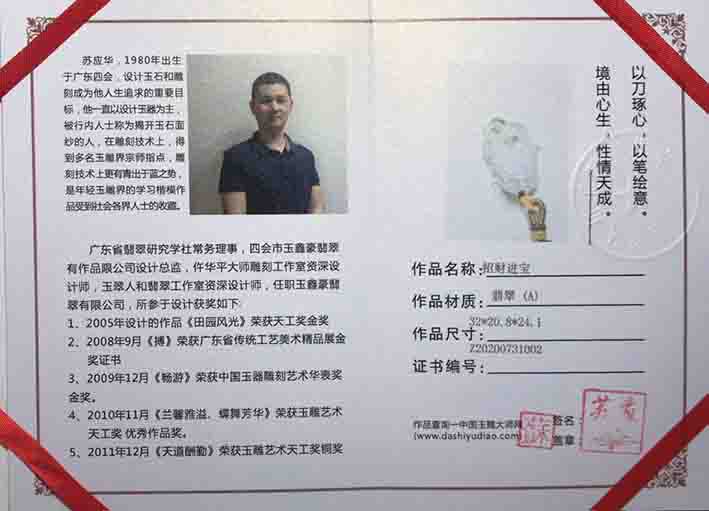 苏应华，1980年出生
于广东四会，设计玉石和雕
刻成为他人生追求的重要目
标，他一直以设计玉器为主，
被行内人士称为揭开玉石面
纱的人，在雕刻技术上，得
到多名玉雕界宗师指点，雕
刻技术上更有青出于蓝之势，
是年轻玉雕界的学习楷模作
品受到社会各界人士的收藏。
广东省翡翠研究学社常务理事，四会市玉鑫豪翡翠
有作品限公司设计总监，仵华平大师雕刻工作室资深设
计师，玉翠人和翡翠工作室资深设计师，任职玉鑫豪翡
翠有限公司，所参于设计获奖如下:
1、2005年设计的作品《田园风光》荣获天工奖金奖
2、2008年9月《搏》荣获广东省传统工艺美术精品展金
奖证书
3、2009年12月《畅游》荣获中国玉器雕刻艺术华表奖
金奖。
4、2010年11月《兰馨雅溢、蝶舞芳华》荣获玉雕艺术
天工奖 优秀作品奖。
5、2011年12月《天道酬勤》荣获玉雕艺术天工奖铜奖
以刀琢心，以笔绘意。
境由心生，性情天成。
作品名称: 招财进宝
作品材质: 翡翠 (A)
作品尺寸: 32*20.8*24.1
证书编号: Z20200731002
作品查询一中国玉雕大师网
(www.dashiyudiao.com)
签名:
盖章